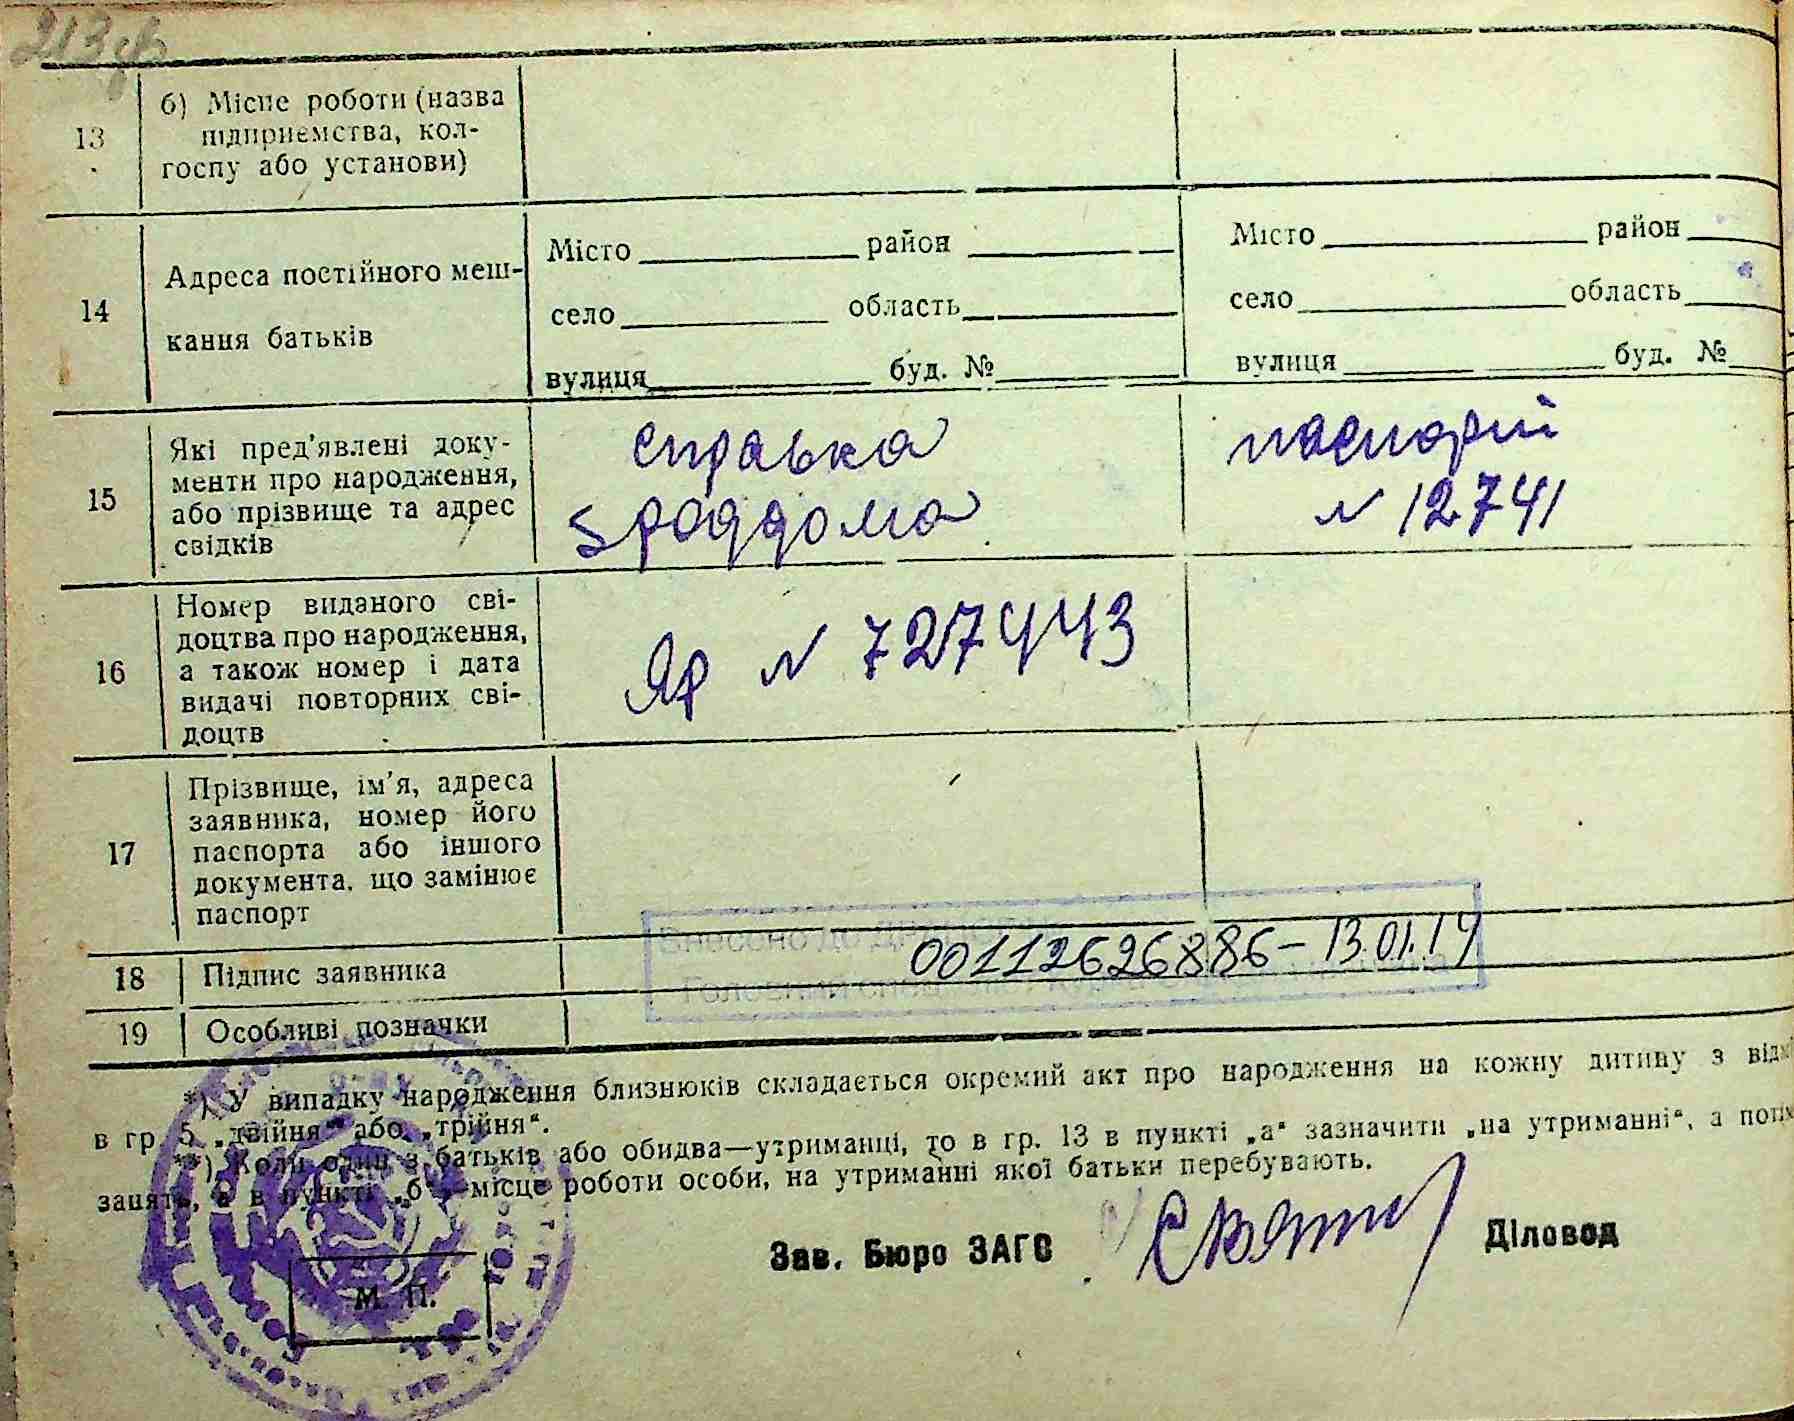 213
13
б) Місце роботи (назва
підприємства, кол-
госпу або установи)
14
Адреса постійного меш-
кання батьків
Місто район
село область
вулиця буд. №
Місто район
село область
вулиця буд. №
15
Які пред'явлені доку-
менти про народження,
або прізвище та адрес
свідків
справка
5 роддома
паспорт
N 12741
16
Номер виданого сві-
доцтва про народження,
а також номер і дата
видачі повторних сві-
доцтв
ЯР N 727443
17
Прізвище, ім'я, адреса
заявника, номер його
паспорта або іншого
документа, що замінює
паспорт
Внесено до
18
Підпис заявника
00112626886 – 13.01.14
Головний
19
Особливі позначки
*) У випадку народження близнюків складається окремий акт про народження на кожну дитину з
в гр. 5 „двійня“ або „трійня“.
**) Коли один з батьків або обидва—утриманці, то в гр. 13 в пункті „а“ зазначити „на утриманні“, а
занять, а в пункті „б“—місце роботи особи, на утриманні якої батьки перебувають.
Зав. Бюро ЗАГС
Діловод
М. П.